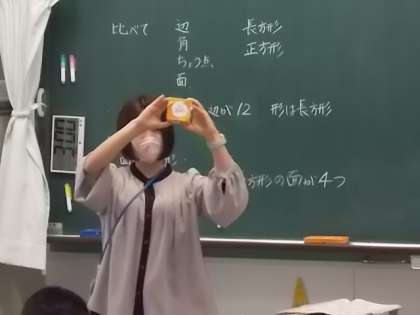 比べて 辺 長方形
角 正方形
ちょう点
面
辺が12 形は長方形
方形の面が4つ